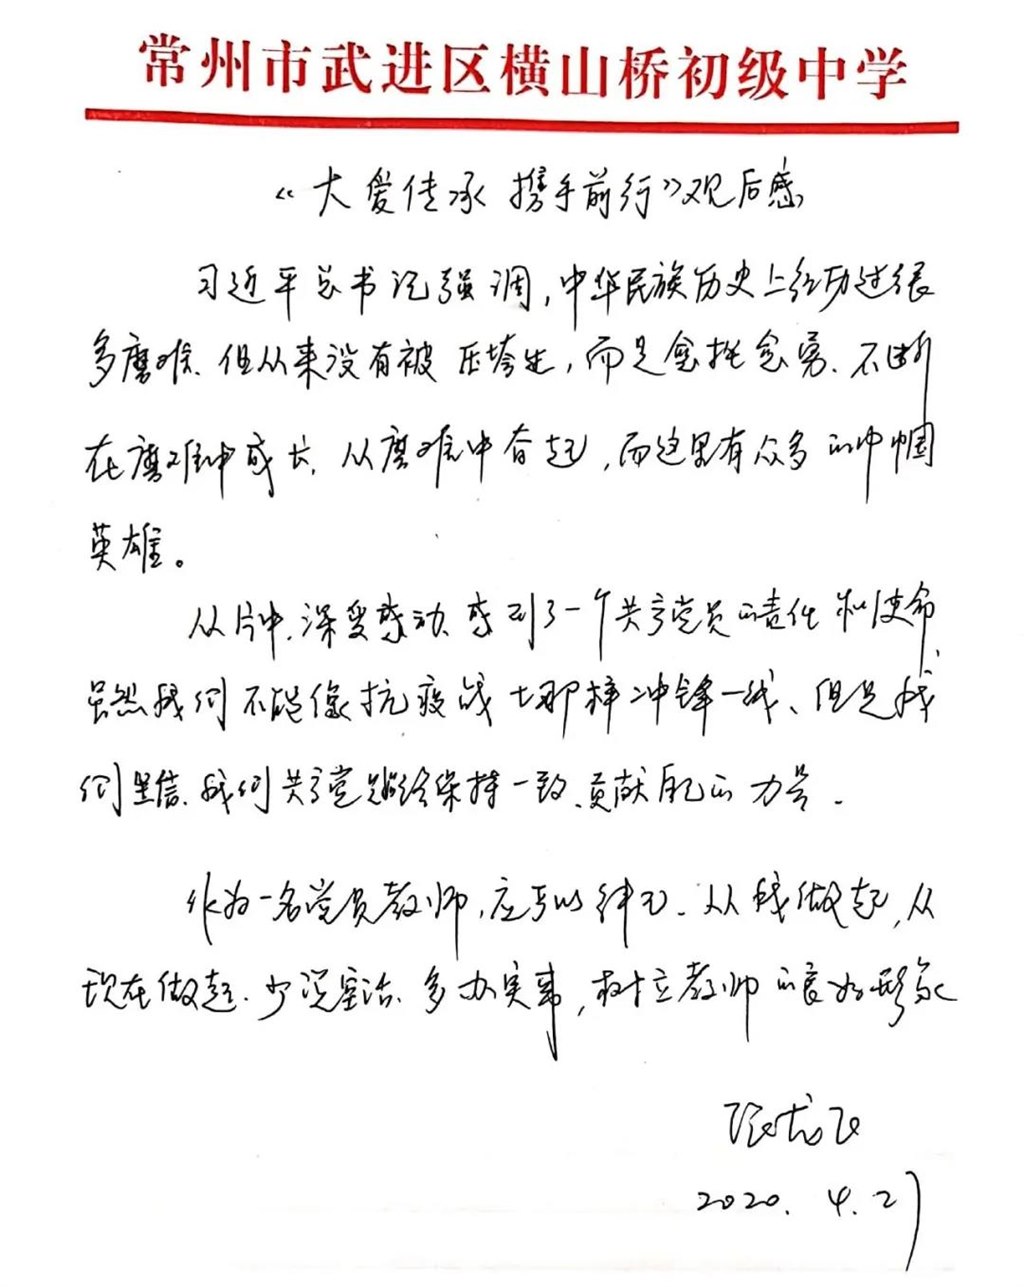 常州市武进区横山桥初级中学
《大爱传承 携手前行》观后感
习近平总书记强调,中华民族历史上经历过很
多磨难、但从来没有被压垮过,而是愈挫愈勇、不断
在磨难中成长、从磨难中奋起,而这里有众多的巾帼
英雄。
从片中,深受感动、感到了一个共产党员的责任和使命,
虽然我们不能像抗疫战士那样冲锋一线、但是我
们坚信、我们共产党始终保持一致、贡献自己的力量.
作为一名党员教师,应予以律己、从我做起,从
现在做起、少说空话、多办实事,树立教师的良好形象
张龙飞
2020.4.27